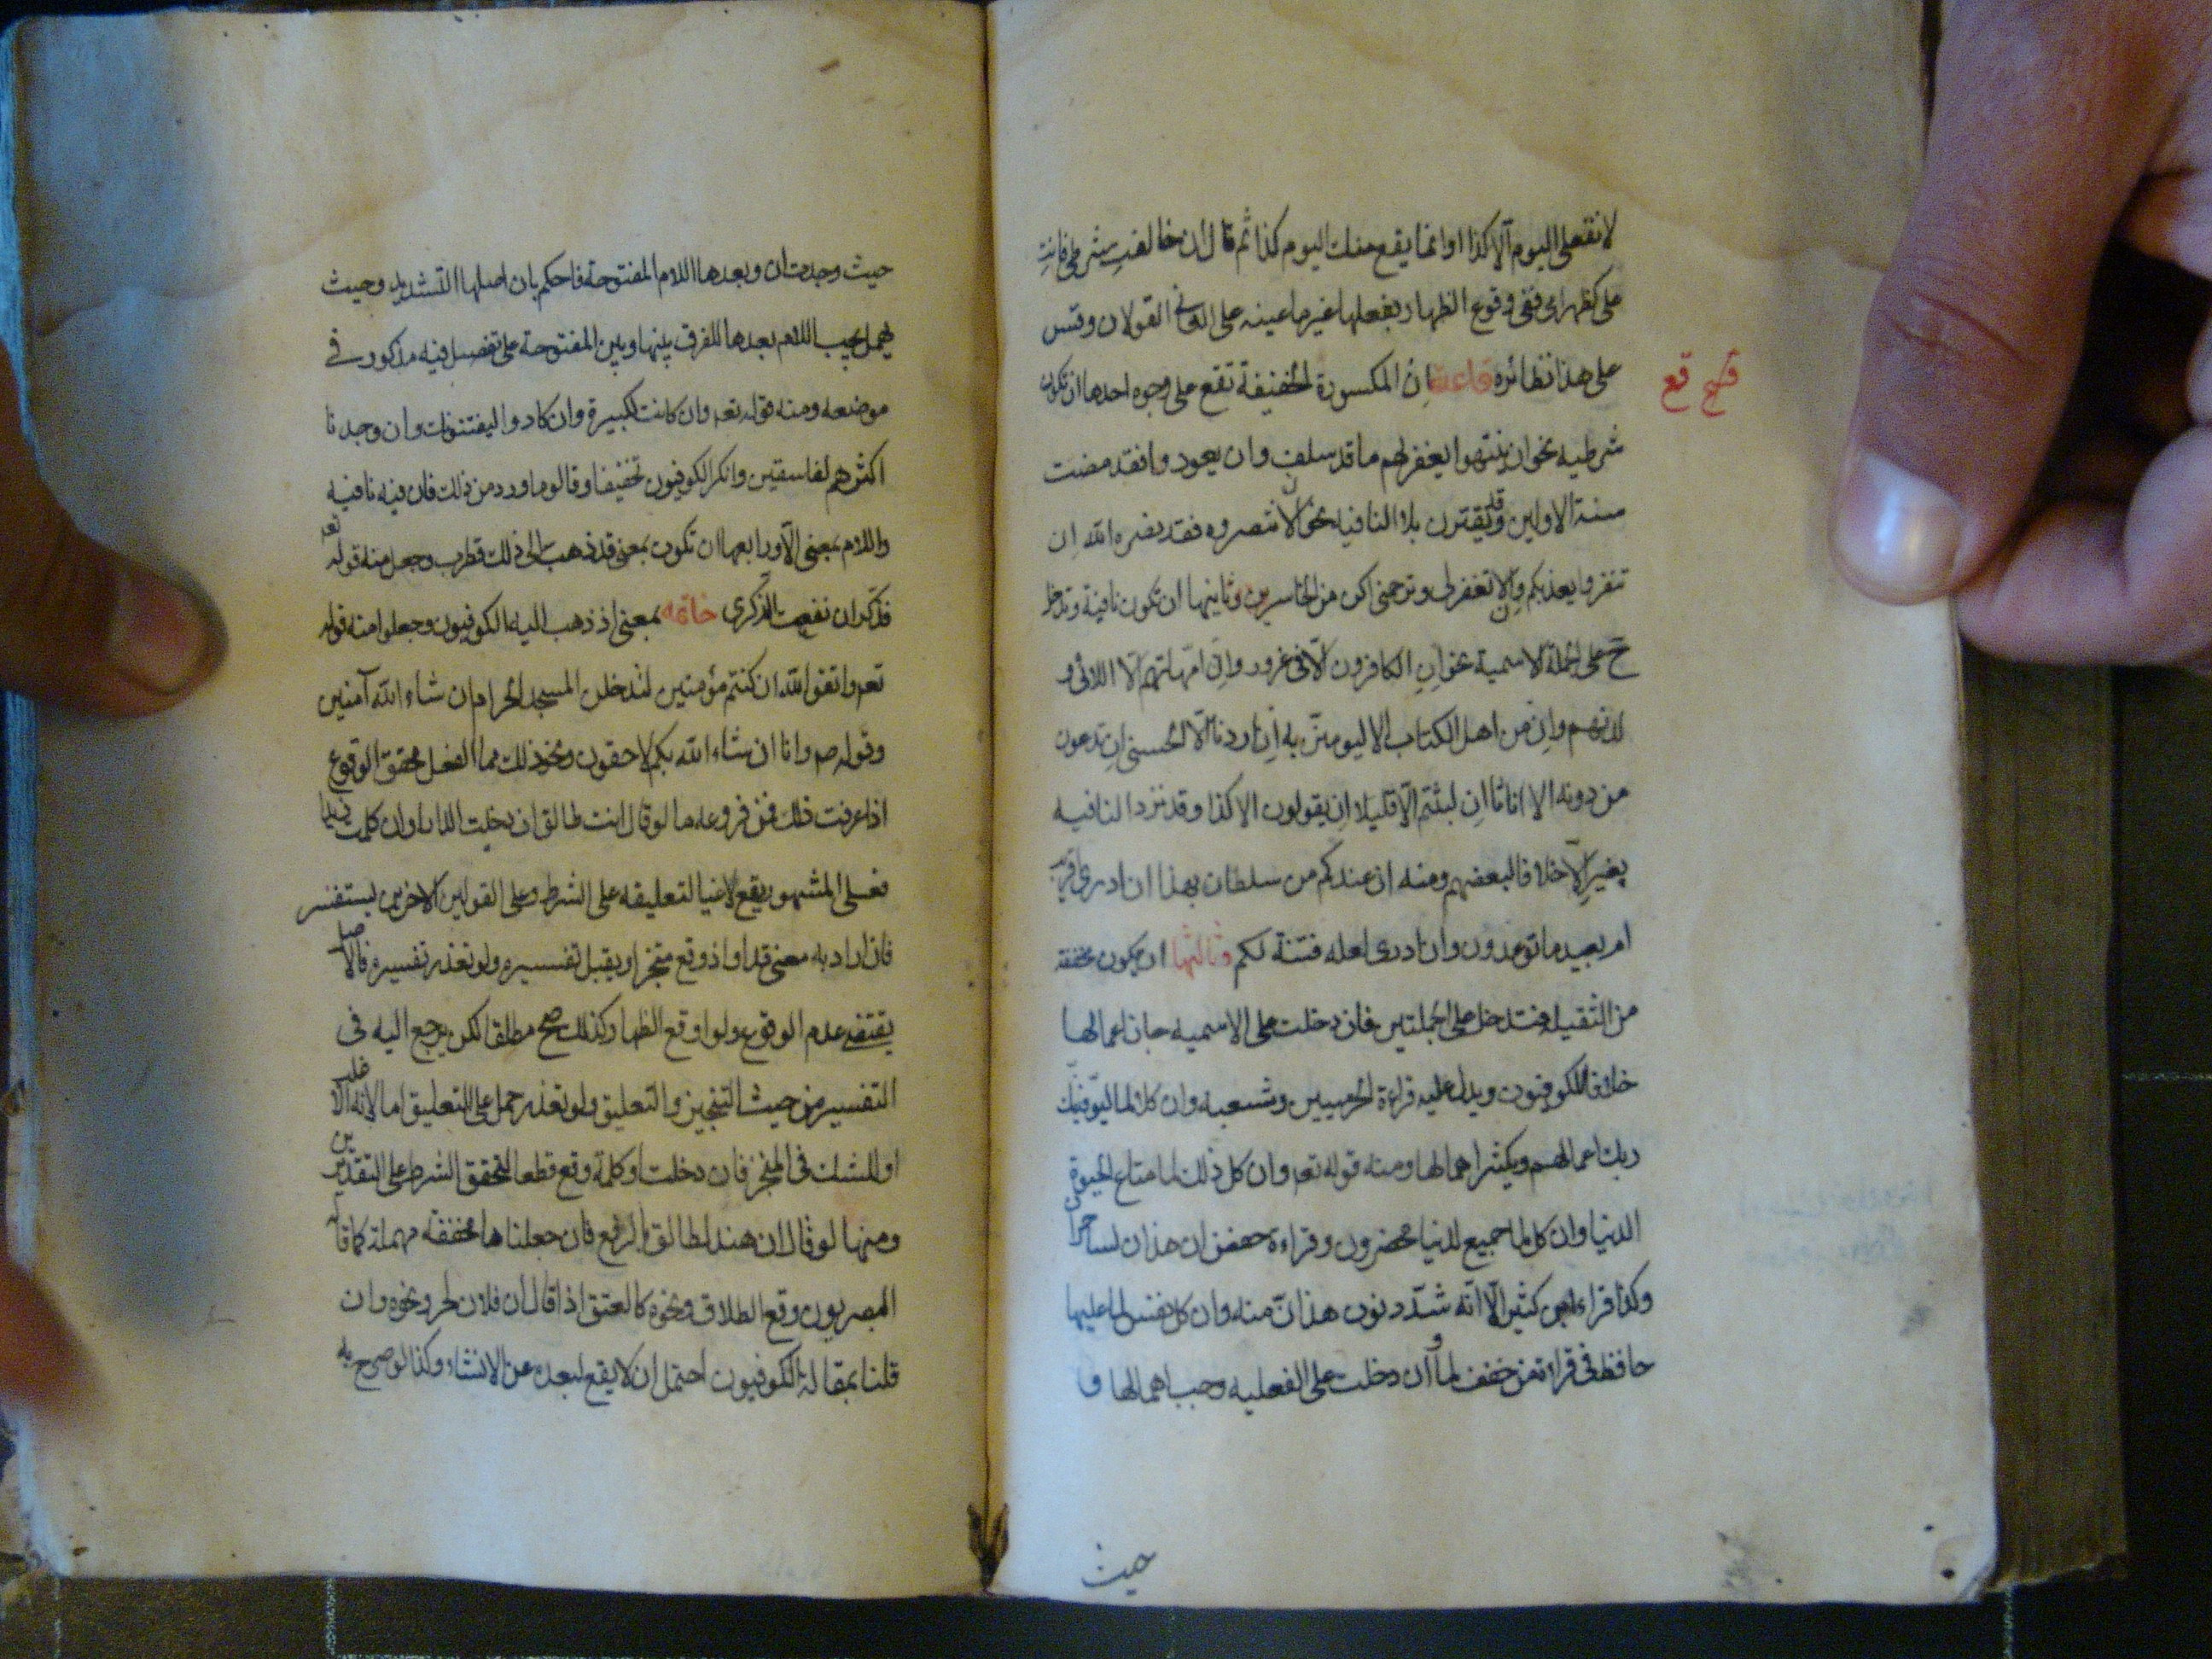 لا تفعلي اليوم الا كذا او انما يقع منك اليوم كذا ثم قال ان خالفت شرطي فانت
على كظهر امي ففي وقوع الظهار بفعلها غير ما عينه على القولان وقس
على هذا نظائره قاعدة ان المكسورة الخفيفة تقع على وجوه احدها ان تكون
قع
شرطيه نحو ان ينتهوا يغفر لهم ما قد سلف وان يعودوا فقد مضت
سنة الاولين وقد تقترن بلا النافيه نحو الا تنصروه فقد نصره الله ان
تنفروا يعذبكم والا تغفر لي وترحمني اكن من الخاسرين وثانيها ان تكون نافية وتدخل
ح على الجملة الاسمية نحو ان الكافرون الا في غرور وان امهاتهم الا اللائي و
لدنهم وان من اهل الكتاب الا ليومنن به ان اردنا الا الحسنى ان تدعون
من دونه الا اناثا ان لبثتم الا قليلا ان يقولون الا كذا وقد ترد النافيه
بغير الا خلافا لبعضهم ومنه ان عندكم من سلطان بهذا ان ادري اقريب
ام بعيد ما توعدون وان ادرى لعله فتنة لكم وثالثها ان يكون مخففه
من الثقيله فتدخل على الجملتين فان دخلت على الاسميه جاز اعمالها
خلافا للكوفيون ويدل عليه قراءة الحرميين وشعبه وان كلا لما ليوفينك
ربك اعمالهم ويكثر اهمالها ومنه قوله تعه وان كل ذلك لما متاع الحيوة
الدنيا وان كل لما جميع لدنيا محضرون وقراءة حفص ان هذان لساحران
وكذا قراء ابن كثير الا انه شدد نون هذان منه وان كل نفس لما عليها
حافظ في قراءة من خفف لما وان دخلت على الفعليه وجب اهمالها و
حيث
حيث وجدت ان وبعدها اللام المفتوحة فاحكم بان اصلها التشديد وحيث
يهمل يجب اللام بعدها للفرق بينها وبين المفتوحة على تفصيل فيه مذكور في
موضعه ومنه قوله تعه وان كانت لكبيرة وان كادوا ليفتنونك وان وجدنا
اكثرهم لفاسقين وانكر الكوفيون تخفيفا وقالوا ما ورد من ذلك فان فيه نافيه
واللام بمعنى الا ورابعها ان تكون بمعنى قد ذهب الى ذلك قطرب وجعل منه قوله تعه
فذكر ان نفعت الذكرى خاتمه بمعنى اذ ذهب اليه الكوفيون وجعلوا منه قوله
تعه واتقوا الله ان كنتم مؤمنين لتدخلن المسجد الحرام ان شاء الله آمنين
وقوله صم وانا ان شاء الله بكم لاحقون ونحو ذلك مما الفعل محقق الوقوع
اذا عرفت ذلك فمن فروعه ما لو قال انت طالق ان دخلت الدار او ان كلمت
فعلى المشهور يقع لاغيا لتعليقه على الشرط وعلى القولين الاخرين يستفسر
فان اراد به معنى قد او اذ وقع منجزا ويقبل تفسيره ولو تعذر تفسيره فالاصل
يقتضي عدم الوقوع ولو اوقع الظهار كذلك صح مطلقا لكن يرجع اليه في
التفسير من حيث التنجيز والتعليق ولو تعذر حمل على التعليق اما لانه الاغلب
او للشك في المنجز فان دخلت او كلمة وقع قطعا لتحقق الشرط على التقديرين
ومنها لو قال ان هند لطالق بالرفع فان جعلناها مخففه مهملة كما قاله
البصريون وقع الطلاق ونحوه كالعتق اذا قال ان فلان لحر ونحوه وان
قلنا بمقالة الكوفيون احتمل ان لا يقع لبعده عن الانشاء وكذا لو صرح به